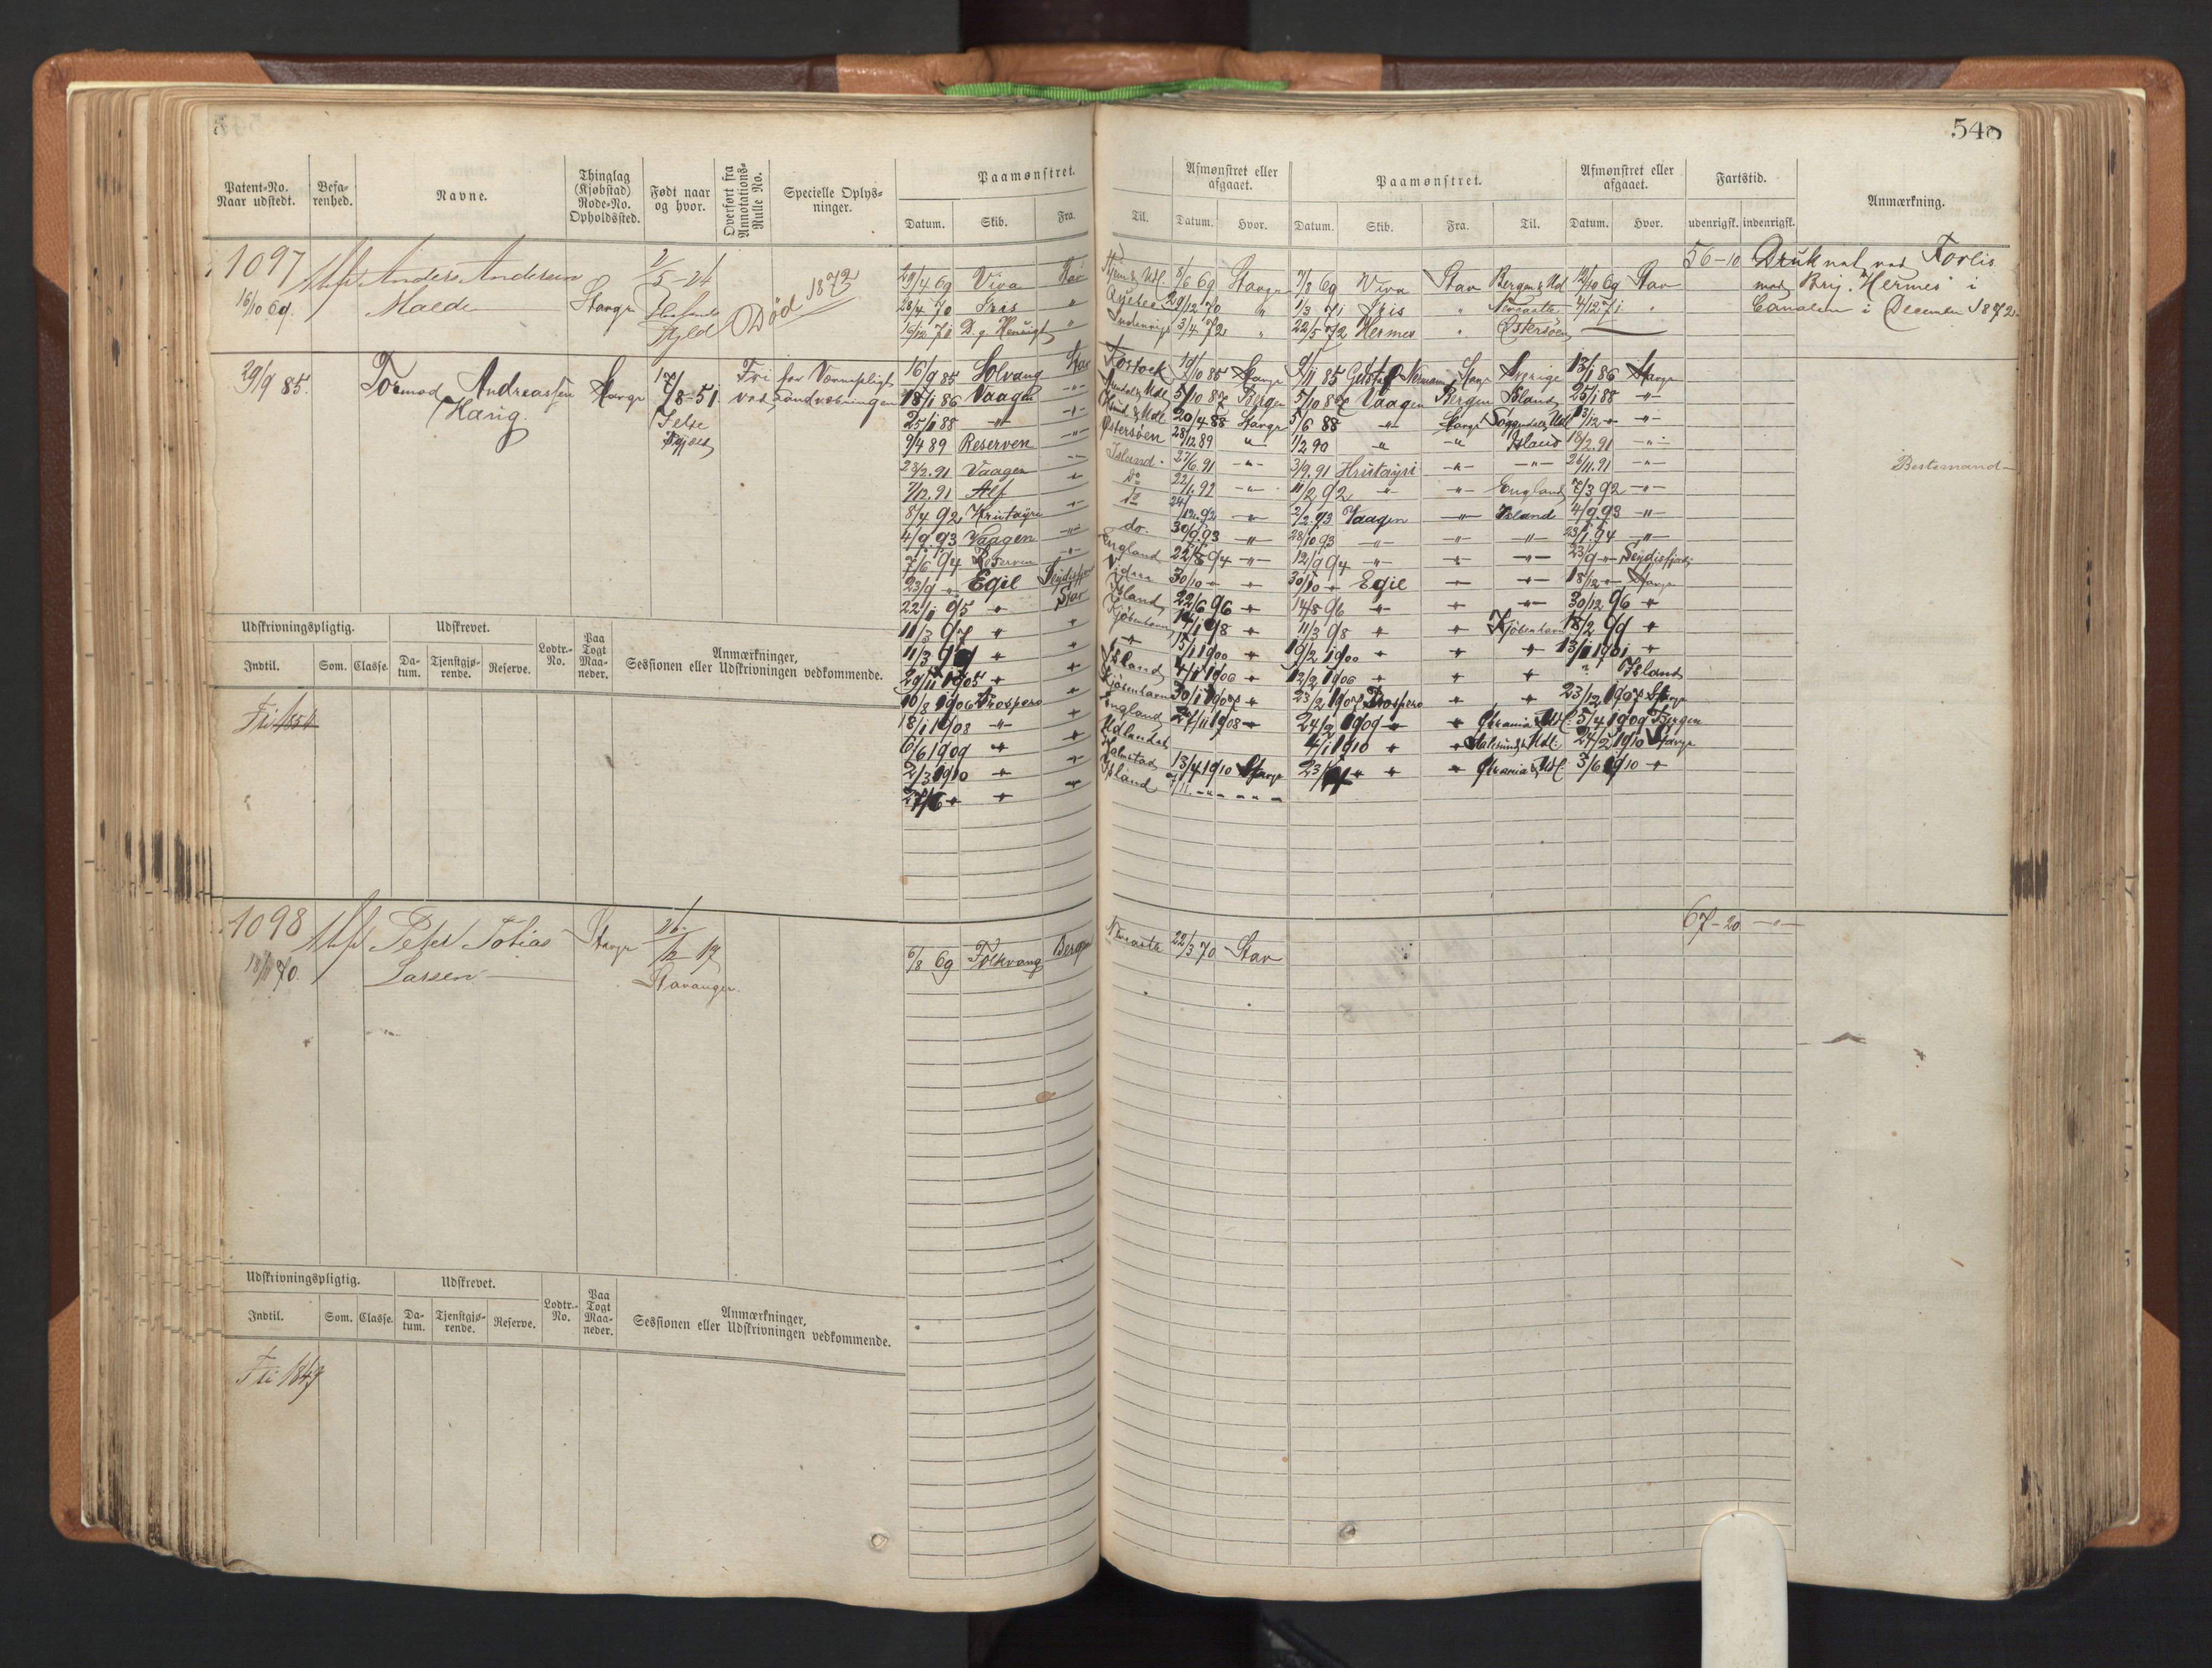 548
Patent-No. Naar udstedt.
Befarenhed.
Navne.
Thinglag (Kjøbstad) Rode-No. Opholdssted.
Født naar og hvor.
Overført fra Annotations-Rulle No.
Specielle Oplysninger.
Paamønstret.
Datum. Skib. Fra. Til.
Afmønstret eller afgaaet.
Datum. Hvor.
Paamønstret.
Datum. Skib. Fra. Til.
Afmønstret eller afgaaet.
Datum. Hvor.
Fartstid.
udenrigsk. indenrigsk.
Anmærkning.
1097 Anders Andersen Stavgr 2/5-26
16/10 69. Maede Død 1872
29/4 69 Viva Stav 8/6 69 Stavgr 7/8 69 Viva Stav Bergen & Udl 12/10 69 Stav
28/4 70 Iris " 29/12 70 " 1/3 71 Iris " Newcastle 4/12 71 "
" Indenrigs 3/4 72 " 22/5 72 Hermes " Østersøen
56-10 Druknet ved Forlis
med Brig. Hermes i
Canalen i Decemb 1872.
29/9 85. Tormod Andreassen Stavgr 17/8-51. Fri for Værnepligt
Haug. Jelse ved Landvæbningen
16/9 85 Solvang Stav Rostock 19/10 85 Stavgr 9/11 85 Stavgr Sverige 13/1 86 Stavgr
18/1 86 Vaagen -"- 5/10 87 Bergen 5/10 87 Vaagen Bergen Island 25/1 88 -"-
25/1 88 -"- -"- 20/4 88 Stavgr 5/6 88 -"- Stavgr
9/4 89 Reserven -"- Østersøen 28/12 89 " 1/2 90 " -"- Island 18/2.91 -"-
23/2.91 Vaagen -"- Island. 27/6.91 -"- 3/9.91 Hrutayri -"- -"- 26/11.91 -"-
7/12.91 Alf -"- do 22/1.92 -"- 11/2 92 " -"- England 7/3 92 -"-
8/4 92 Hrutayri -"- do 24/12.92 -"- 2/2.93 Vaagen -"- Island 4/9.93 -"-
4/9.93 Vaagen -"- do. 30/9 93 -"- 28/10 93 -"- -"- -"- 23/1.94 -"-
7/6 94 Reserven -"- England 22/8 94 -"- 12/9 94 -"- -"- -"- 23/9 -"- Seydisfjord
23/9 -"- Egil Seydisfjord 30/10 -"- -"- 30/10 -"- Egil -"- -"- 18/12 -"- Stavgr
22/11 95 " Stav Island 22/6 96 " 14/8 96 " " -"- 30/12 96 "
11/3 97 " " Kjøbenhavn 98 " 11/3 98 " " Kjøbenhavn 18/2 99 "
11/3 99 " " -"- 15/1 1900 " 19/2 1900 " " " 13/1 1901 "
29/11 1905 " " Island 4/1 1906 " 12/2 1906 " " " ? Island
10/8 1906 Prospero " Kjøbenhavn 30/1 1907 " 23/2 1907 Prospero " " 23/12 1907 Stavgr
18/1 1908 -"- " England 27/11 1908 " 24/2 1909 " " 5/4 1909 Bergen
6/6 1909 " " Udlandet 4/1 1910 " " Udl. 24/2 1910 Stavgr
2/3 1910 " " Halmstad 13/4 1910 Stavgr 23/4 " " " 3/6 1910 "
27/6 " " " Island
Bestemand
Udskrivningspligtig.
Indtil. Som. Classe.
Udskrevet.
Datum. Tjenstgjørende. Reserve.
Lodtr.-No.
Paa Togt Maaneder.
Anmærkninger, Sessionen eller Udskrivningen vedkommende.
Fri
1098 Peter Tobias Stavgr 26/12 19
Larsen Stavanger
6/8 69 Folkvang Bergen Newcastle 22/3 70 Stav
67-20 -"-
Udskrivningspligtig.
Indtil. Som. Classe.
Udskrevet.
Datum. Tjenstgjørende. Reserve.
Lodtr.-No.
Paa Togt Maaneder.
Anmærkninger, Sessionen eller Udskrivningen vedkommende.
Fri 1849